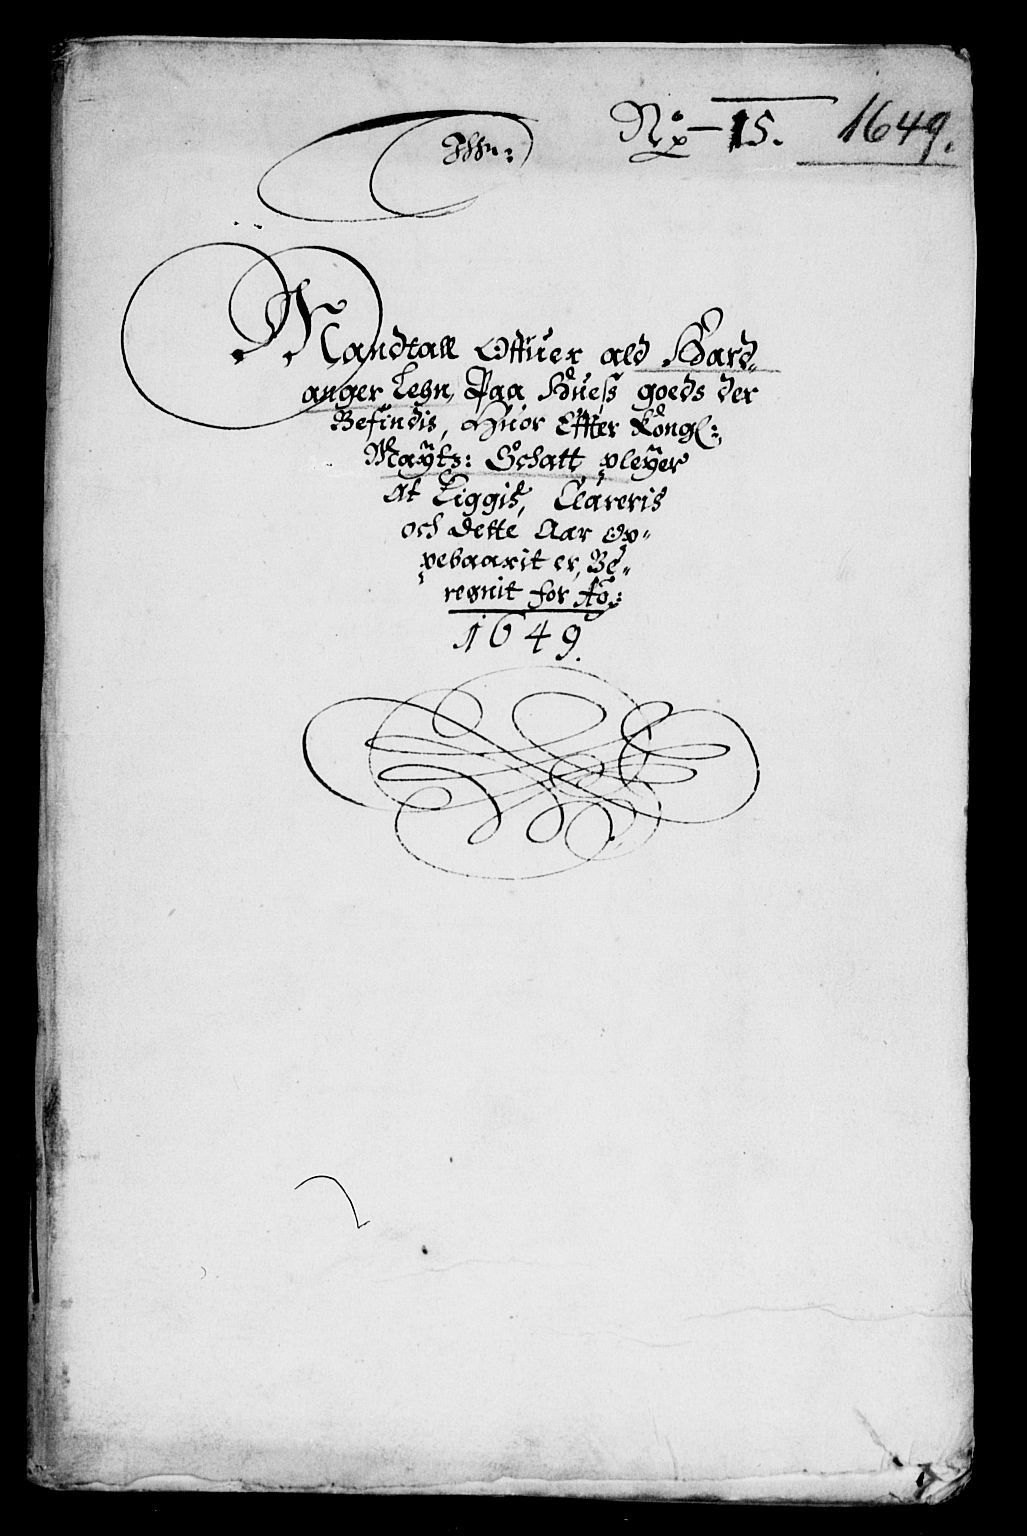 No 15. 1649.
Mandtall Offuer ald Hard-
anger Lehn, Paa Huess goeds der
Befindis, Huor Effter Kongl:
Maÿts: Schatt pleÿer
At Liggis, Clareris
och dette Aar op-
pebaarit er, Be-
regnit for Ao:
1649.